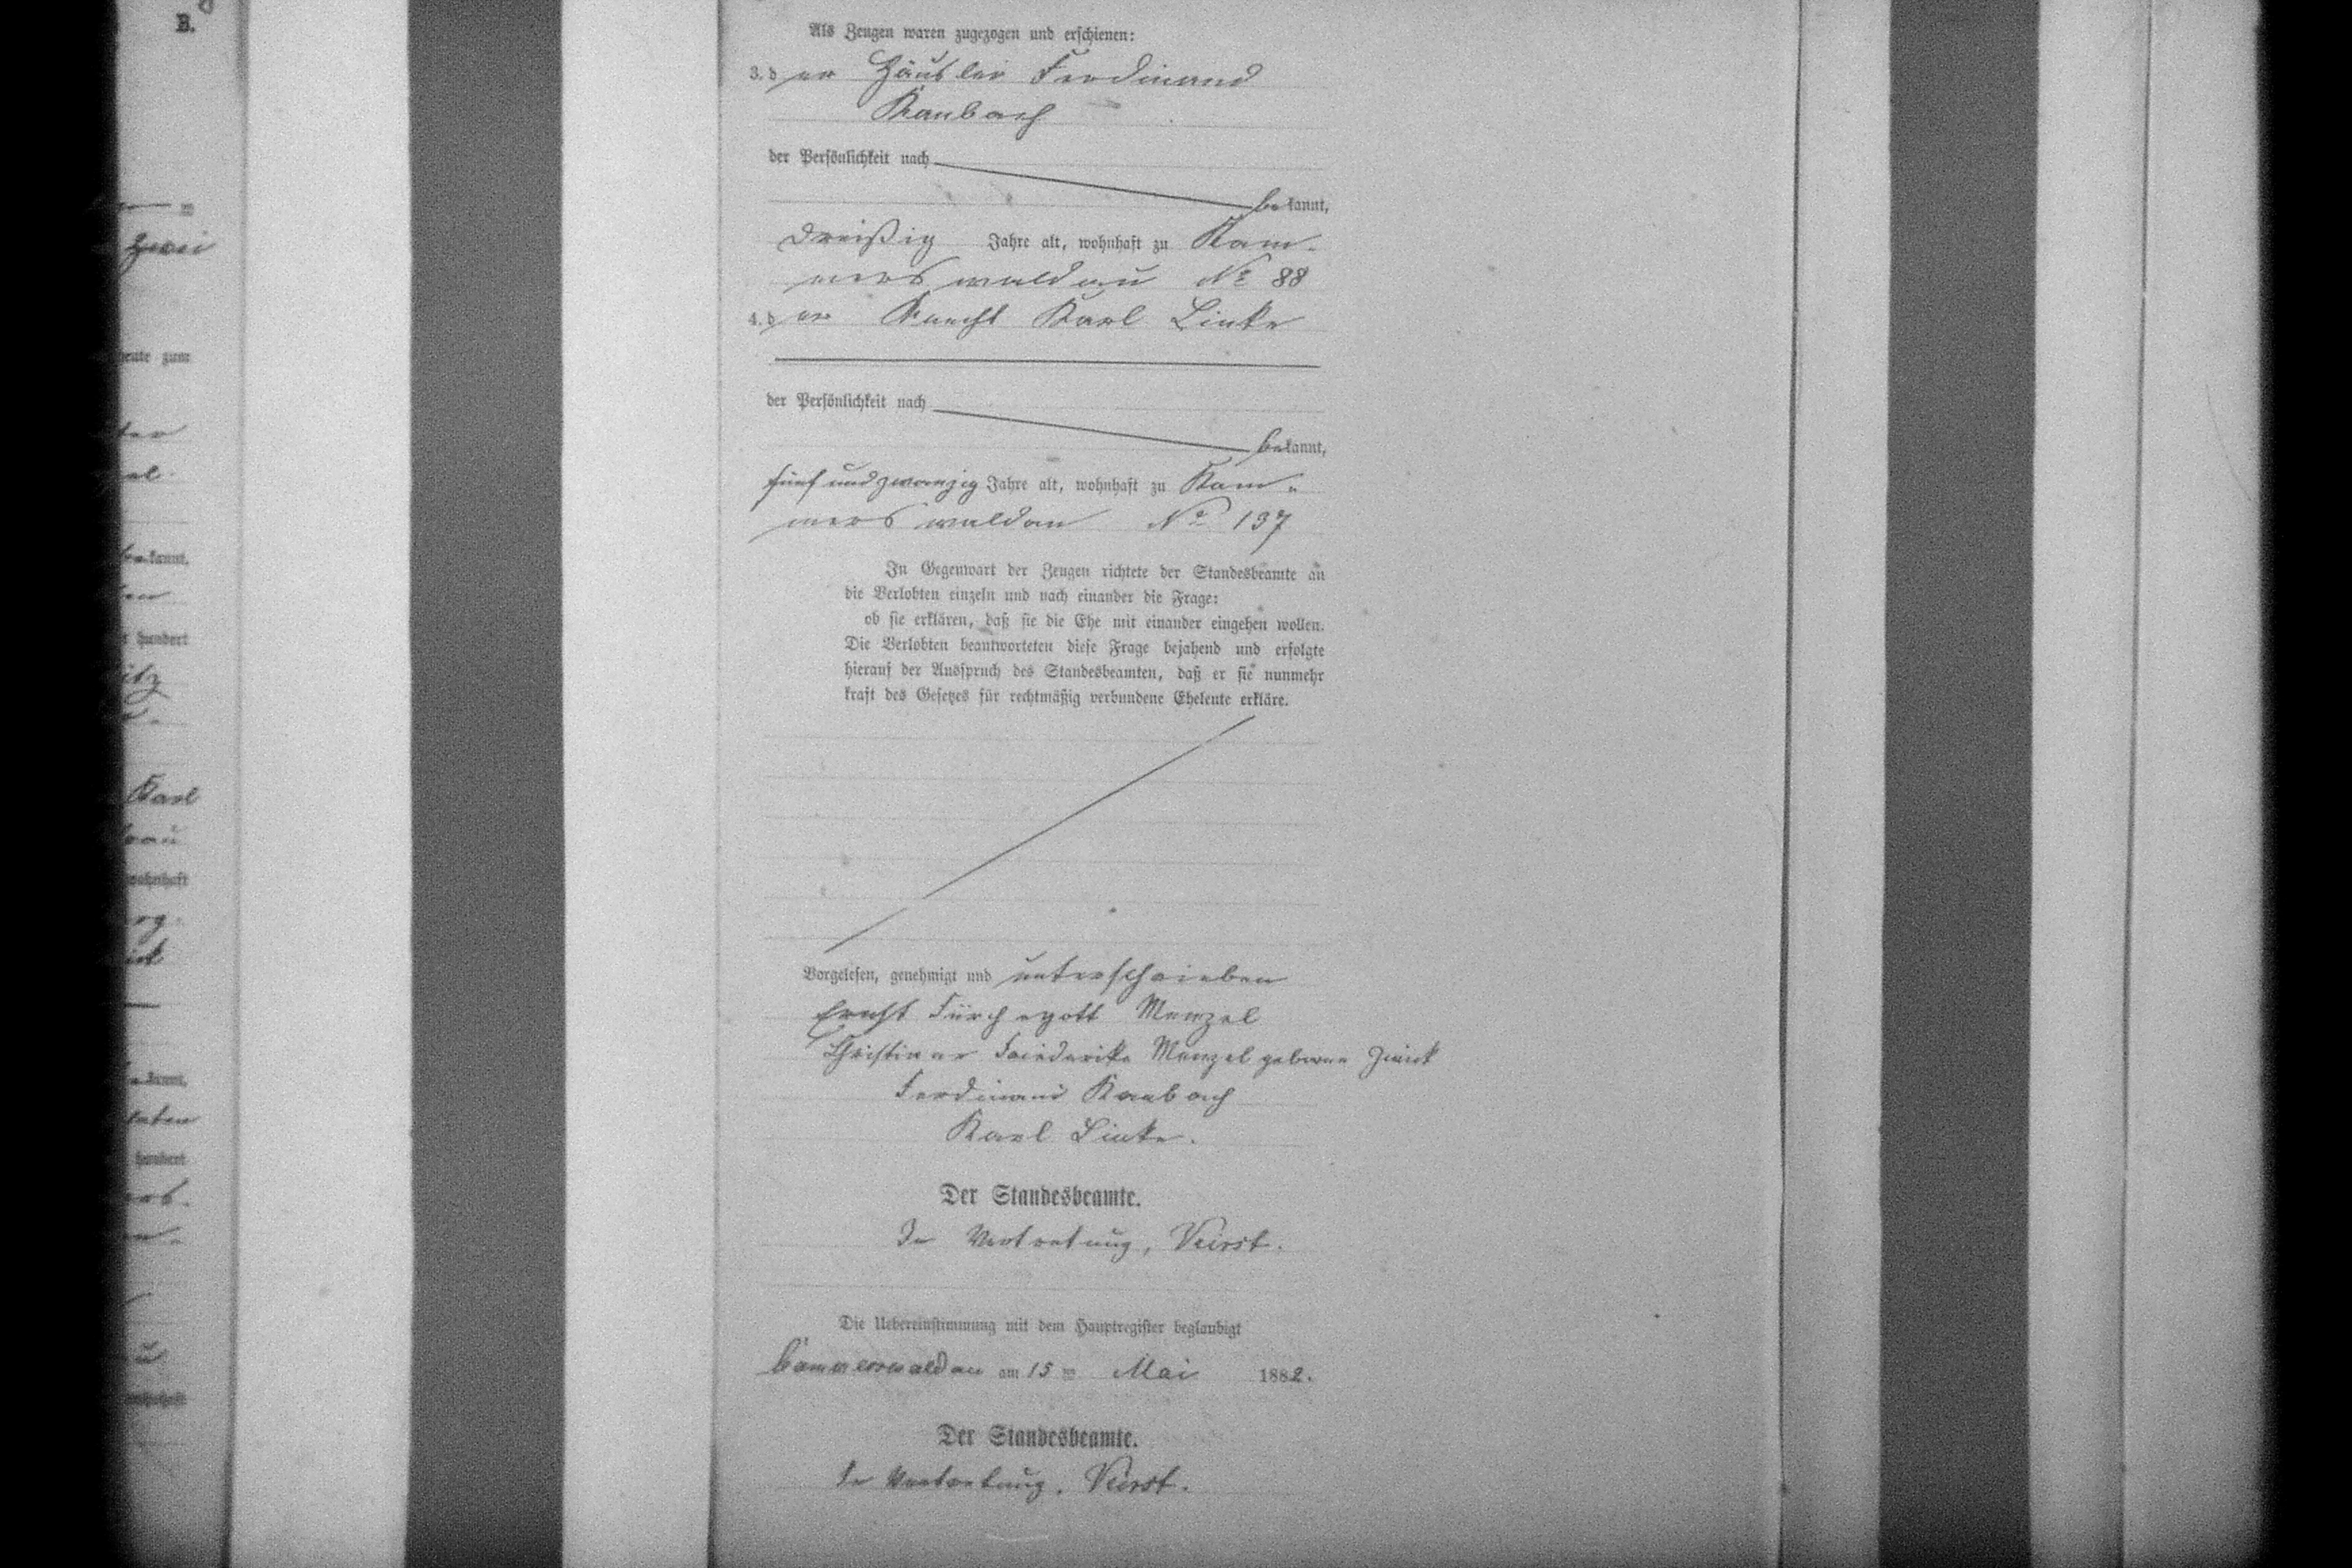 B.
zwei
heute zum
kannt,
hundert
Karl
wohnhaft
kannt,
hundert
Als Zeugen waren zugezogen und erschienen:
3. der Häusler Ferdinand
Raubach
der Persönlichkeit nach
bekannt,
dreißig Jahre alt, wohnhaft zu Kam-
merswaldau No 88
4. der Knecht Karl Linke
der Persönlichkeit nach
bekannt,
fünfundzwanzig Jahre alt, wohnhaft zu Kam-
merswaldau No 137
In Gegenwart der Zeugen richtete der Standesbeamte an
die Verlobten einzeln und nach einander die Frage:
ob sie erklären, daß sie die Ehe mit einander eingehen wollen.
Die Verlobten beantworteten diese Frage bejahend und erfolgte
hierauf der Ausspruch des Standesbeamten, daß er sie nunmehr
kraft des Gesetzes für rechtmäßig verbundene Eheleute erkläre.
Vorgelesen, genehmigt und unterschrieben
Ernst Fürchegott Menzel
Christiane Friederike Menzel geborne
Ferdinand Raubach
Karl Linke.
Der Standesbeamte.
In Vertretung, Veirst.
Die Uebereinstimmung mit dem Hauptregister beglaubigt
Cammerswaldau am 15 ten Mai 1882.
Der Standesbeamte.
In Vertretung. Veirst.